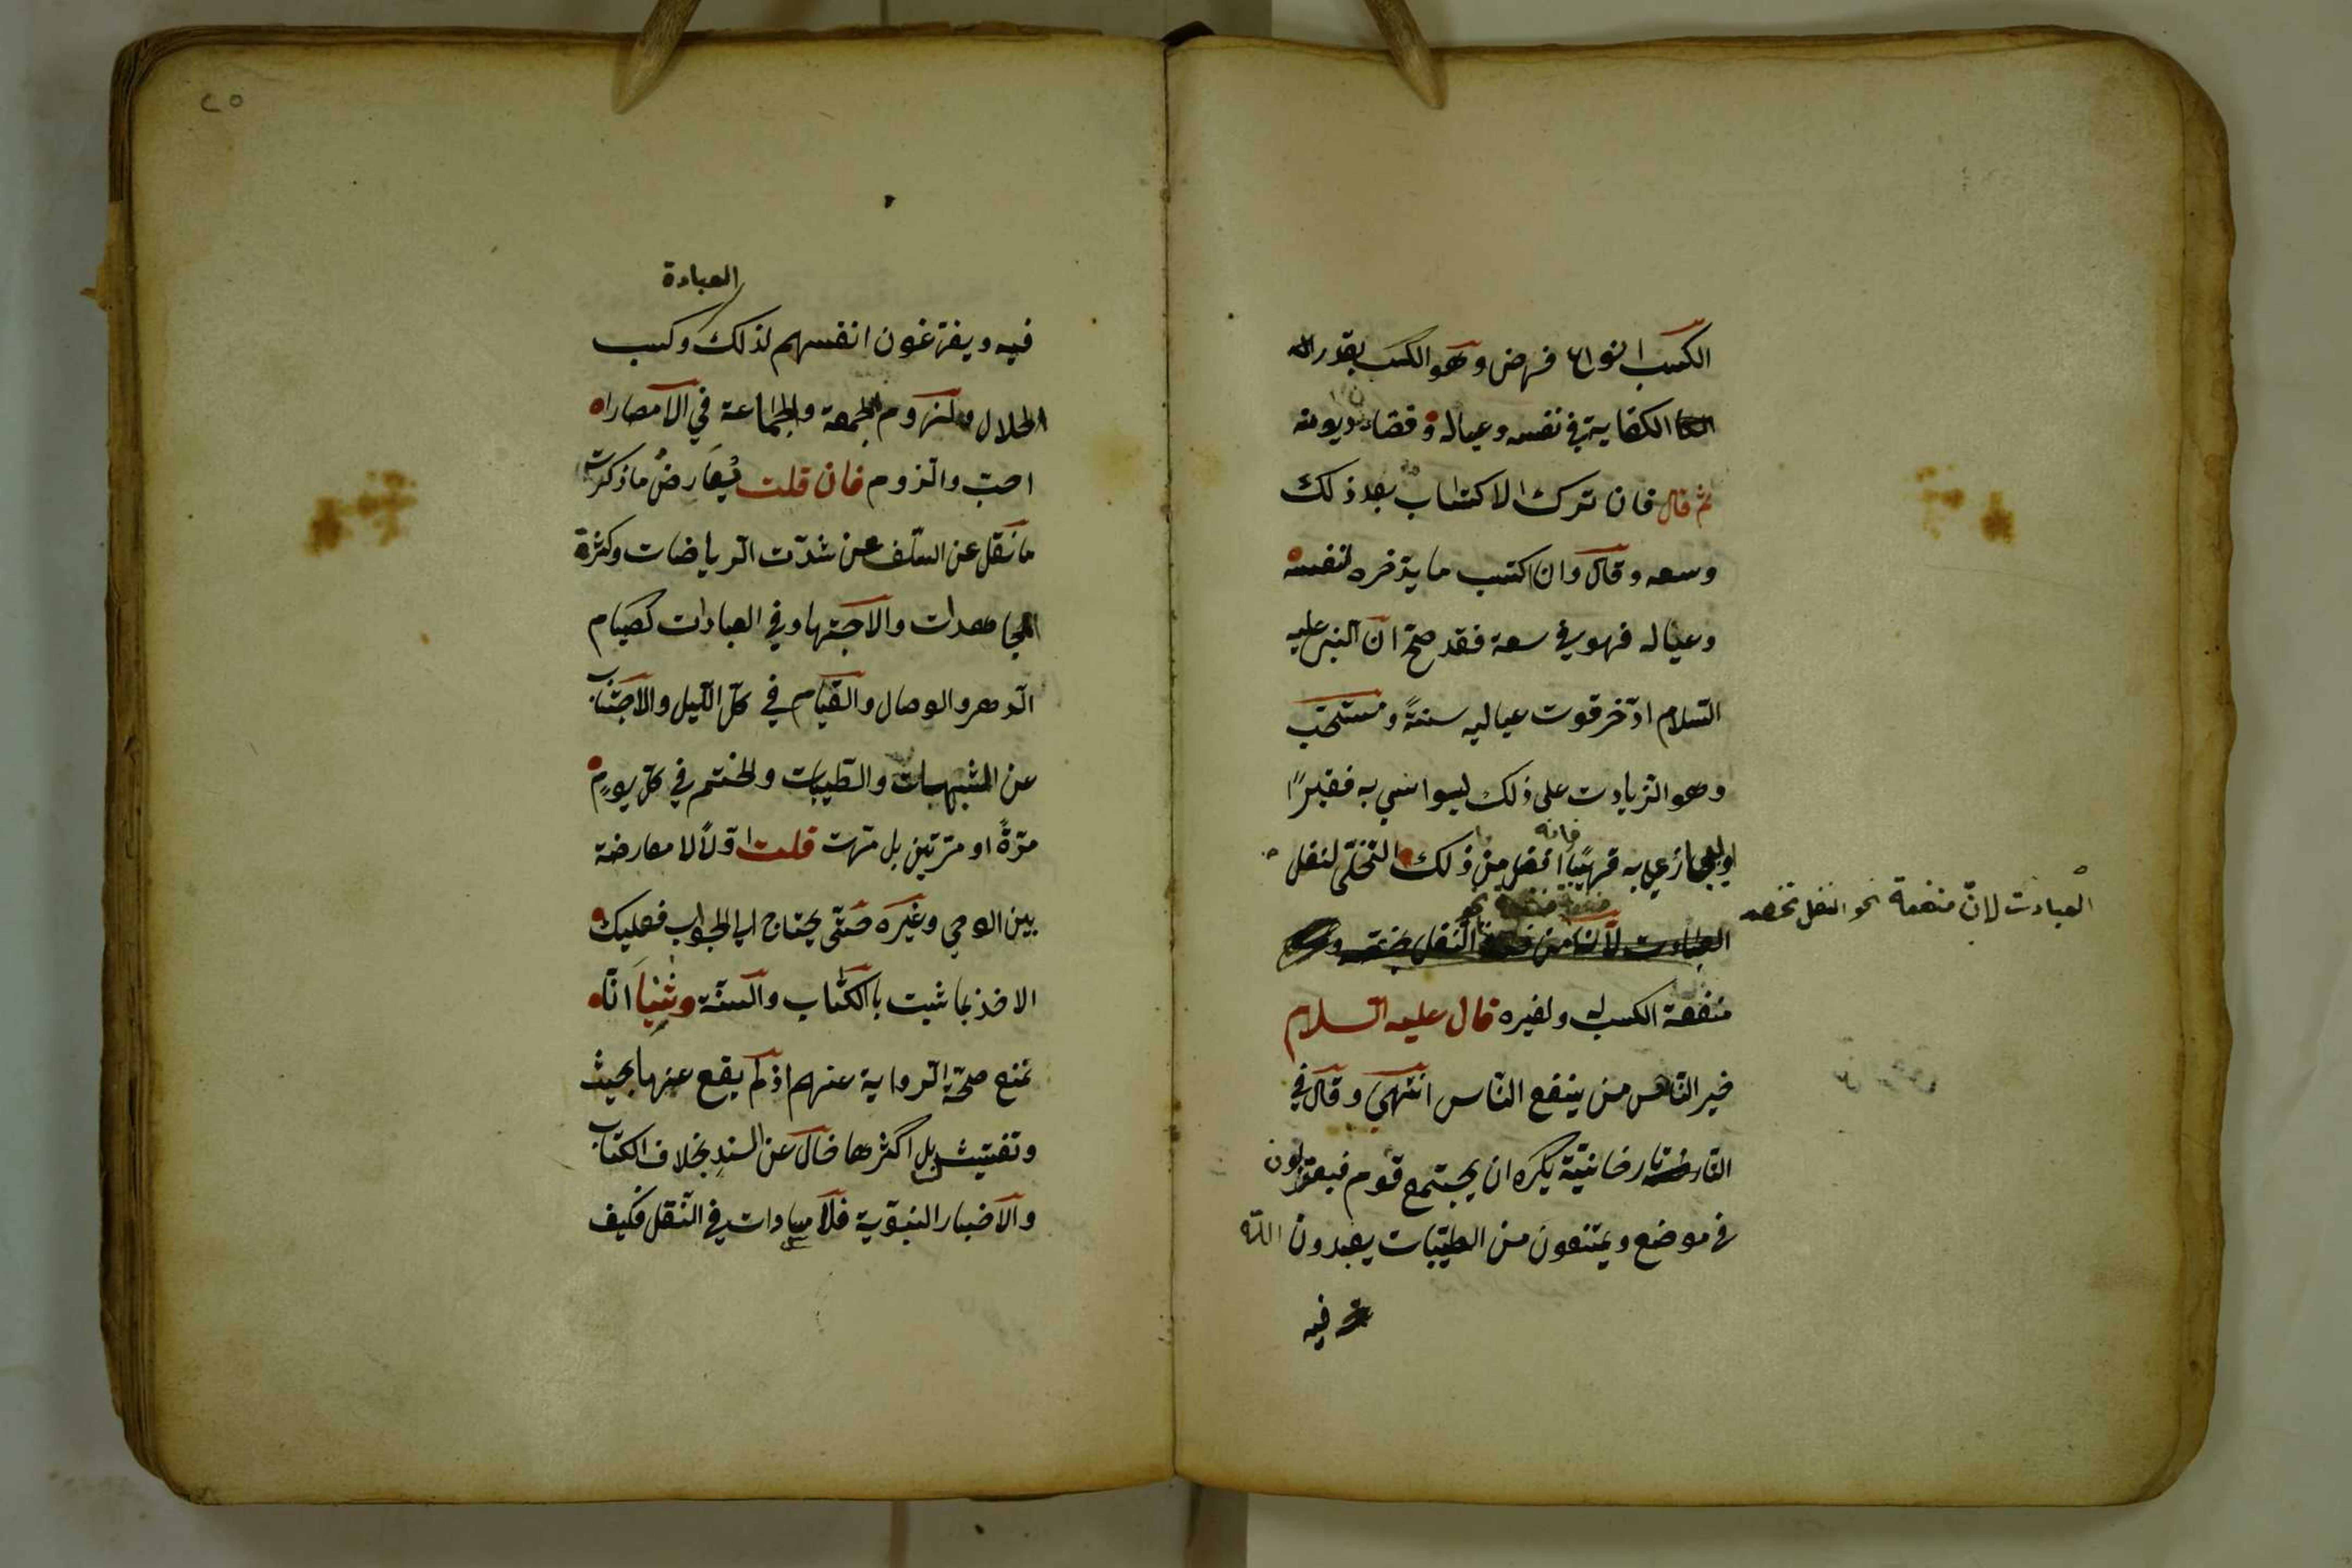 الكسب انواع فرض وهو الكسب بقدر
الكفاية في نفسه وعياله وقضاء ديونه
ثم قال فان ترك الاكتساب بعد ذلك
وسعه وقال وان اكتسب ما يدّخره لنفسه
وعياله فهو في سعة فقد صحّ انّ النبي عليه
السلام ادّخر قوت عياليه سنةً ومستحبّ
وهو الزيادت على ذلك ليواسي به فقيرًا
او يجازي به قريبًا فانه افضل من ذلك التخلّي لنفل
العبادت لانّ منفعة نحو النفل تخصه
منفعة الكسب له ولغيره قال عليه السلام
خير الناس من ينفع الناس انتهى وقال في
التاتارخانيّة يكره ان يجتمع قوم فيعتزلون
في موضع ويمتنعون من الطيّبات يعبدون الله
فيه
٢٥
العبادة
فيه ويفرّغون انفسهم لذلك وكسب
الحلال ولزوم الجمعة والجماعة في الامصار
احبّ والزوم فان قلت يُعَارضُ ما ذكرت
ما نقل عن السلف من شدّت الرياضات وكثرة
المجاهدات والاجتهاد في العبادات كصيام
الدهر والوصال والقيام في كلّ الليل والاجتناب
عن المشبهات والطيبات والختم في كلّ يومٍ
مرّةً او مرّتين بل مرّت قلت اوّلاً لا معارضة
بين الوحي وغيره حتّى يحتاج الى الجواب فعليك
الاخذ بما ثبت بالكتاب والسنّة وثنيًا انّا
نمنع صحّة الرواية عنهم اذ لم يقع عنها بحيث
وتفتيش بل اكثرها خال عن السند بخلاف الكتاب
والاخبار النبوّية فلا مساوات في النقل فكيف